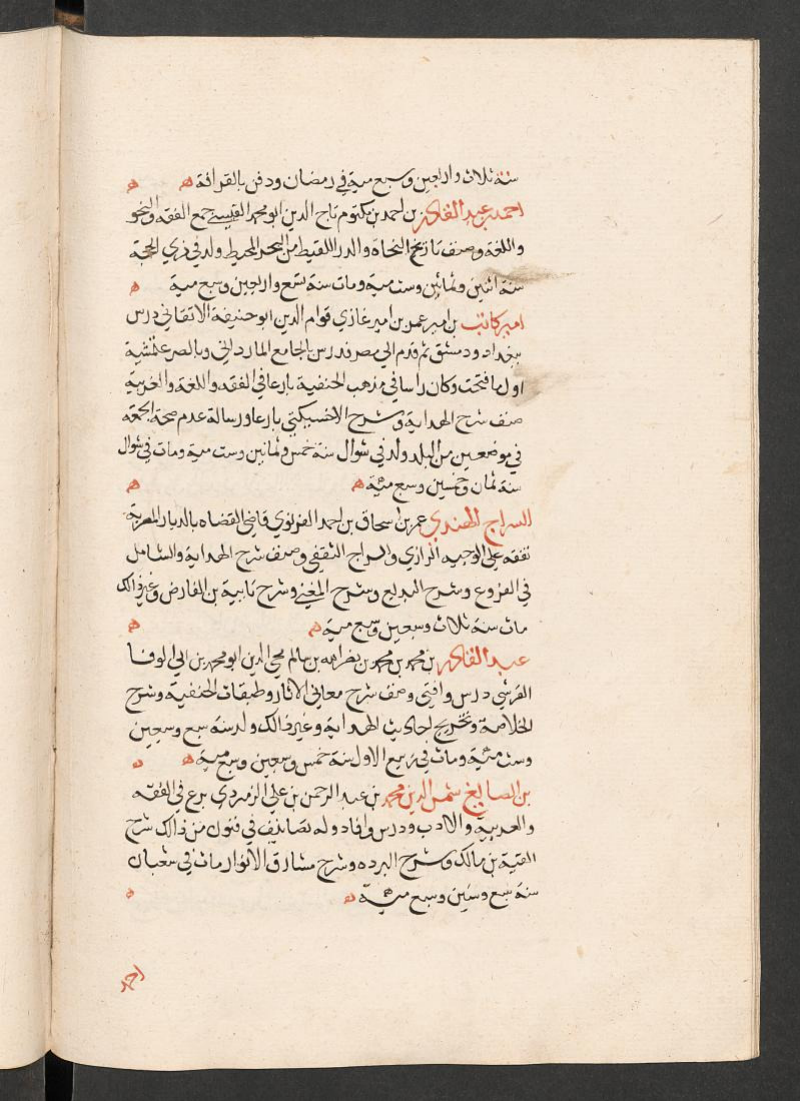 سنة ثلاث واربعين وسبع مية في رمضان ودفن بالقرافة ه ه
احمد بن عبد القادر بن احمد بن مكتوم تاج الدين ابو محمد القيسي جمع الفقه والنحو
واللغة وصنف تاريخ النحاة والدر اللقيط من البحر المحيط ولد في ذي الحجة
سنة اثنين وثمانين وست مية ومات سنة تسع واربعين وسبع مية ه
امير كاتب بن امير عمر بن امير غازي قوام الدين ابو حنيفة الاتقاني درس
ببغداد ودمشق ثم قدم الي مصر فدرس بالجامع المارداني وبالصرغتمشية
اول ما فتحت وكان راسا في مذهب الحنفية بارعا في الفقه واللغة والعربية
صنف شرح الهداية وشرح الاخسيكتي بارعا ورسالة عدم صحة الجمعة
في موضعين من البلد ولد في شوال سنة خمس وثمانين وست مية ومات في شوال
سنة ثمان وخمسين وسبع مئية ه ه
السراج الهندي عمر بن اسحاق بن احمد الغزنوي قاضي القضاه بالديار المصرية
تفقه علي الوجيه الرازي والسراج الثقفي وصنف شرح الهداية والشامل
في الفروع وشرح البديع وشرح المغني وشرح تايية بن الفارض وغير ذالك
مات سنة ثلاث وسبعين وسبع مية ه ه
عبد القادر بن محمد بن محمد بن نصر الله بن سالم محي الدين ابو محمد بن ابي الوفا
القرشي درس وافتي وصنف شرح معاني الاثار وطبقات الحنفية وشرح
الخلاصة وتخريج احاديث الهداية وغير ذالك ولد سنة سبع وسبعين
وست مئية ومات في ربيع الاول سنة خمس وسبعين وسبع مية ه ه
بن الصايغ شمس الدين محمد بن عبد الرحمن بن علي الزمردي برع في الفقه
والعربية والادب ودرس وافاد وله تصانيف في فنون من ذالك شرح
الفية بن مالك وشرح البرده وشرح مشارق الانوار مات في شعبان
سنة سبع وستين وسبع مئية ه ه
احمد